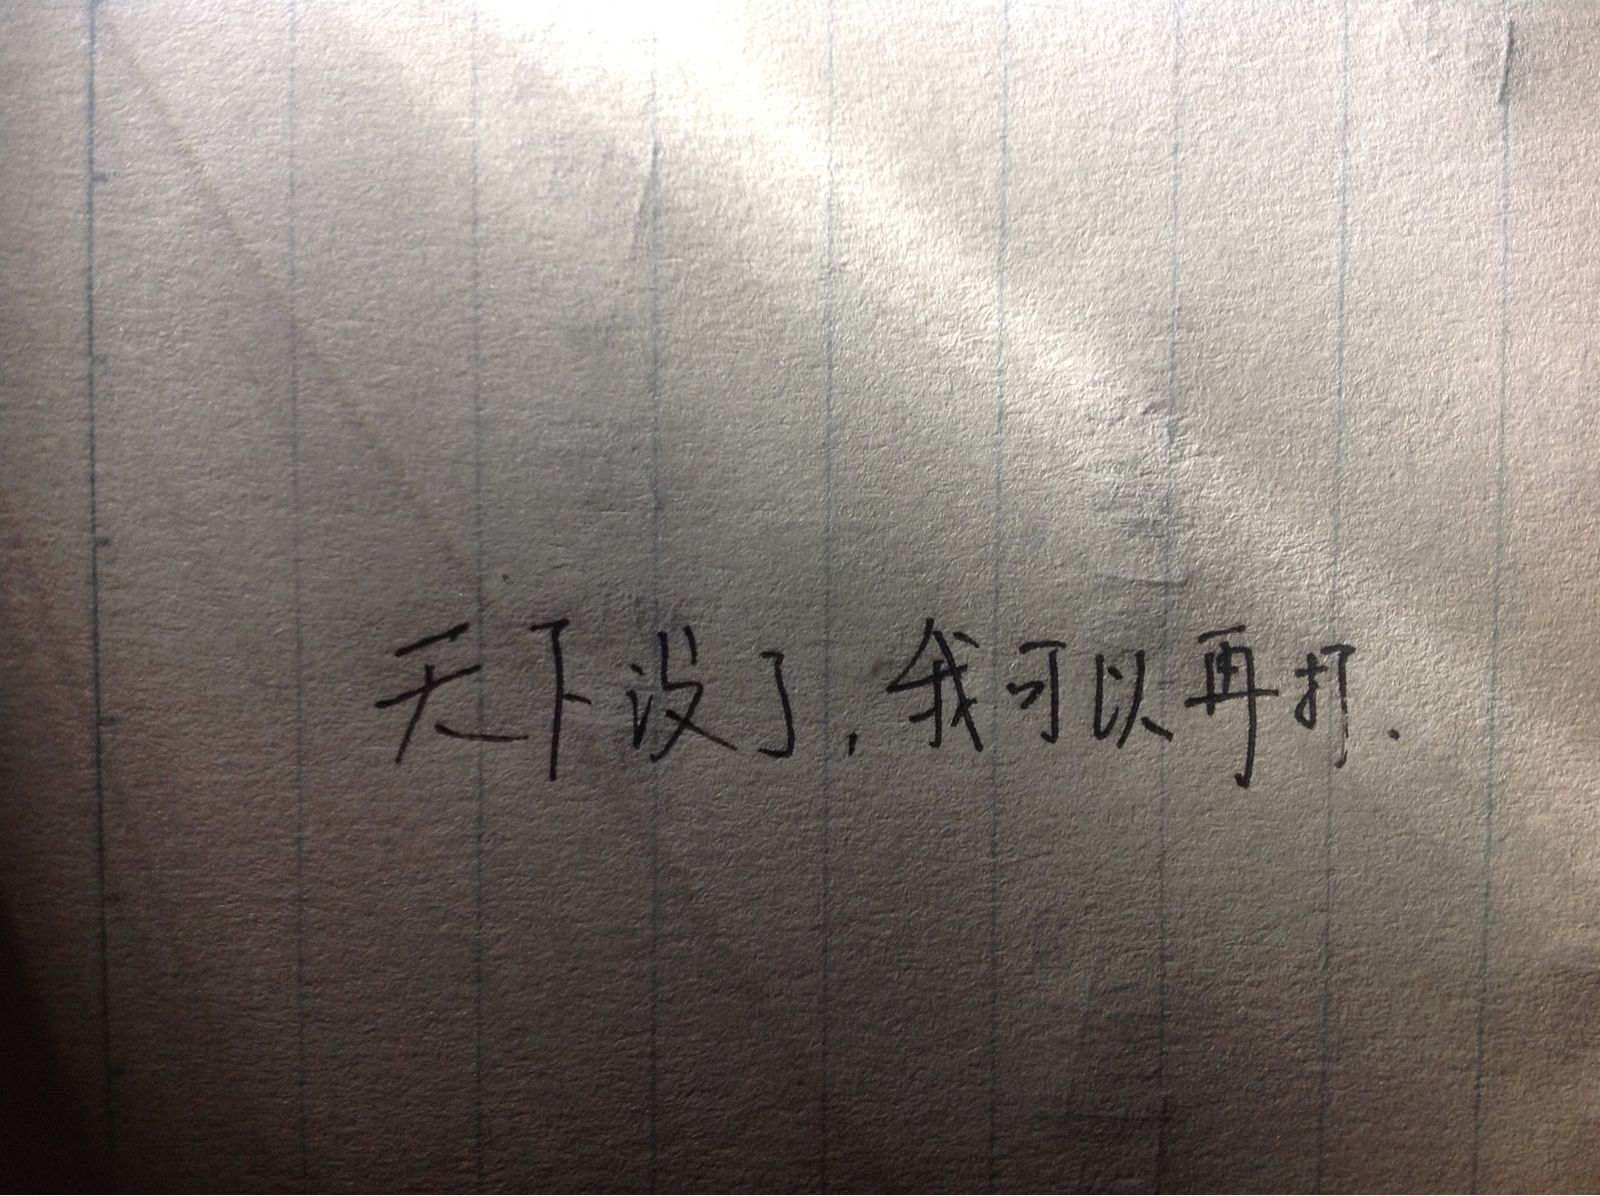 天下没了,我可以再打.